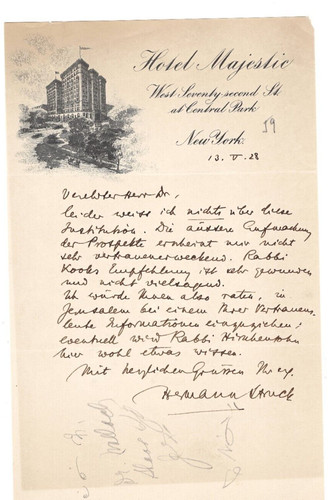 Hotel Majestic
West Seventy-second St.
at Central Park
New York.
59
13. V. 28
Verehrter Herr Dr.,
leider weiss ich nichts über diese
Institution. Die äussere Aufmachung
der Prospekte erscheint mir nicht
sehr vertrauenerweckend. Rabbi
Kooks Empfehlung ist sehr gewunden
und nicht vielsagend.
Ich würde Ihnen also raten, in
Jerusalem bei einem Ihrer Vertrauens
leute Informationen einzuziehen;
eventuell wird Rabbi
hier wohl etwas wissen.
Mit herzlichen Grüssen Ihr erg.
Hermann Struck